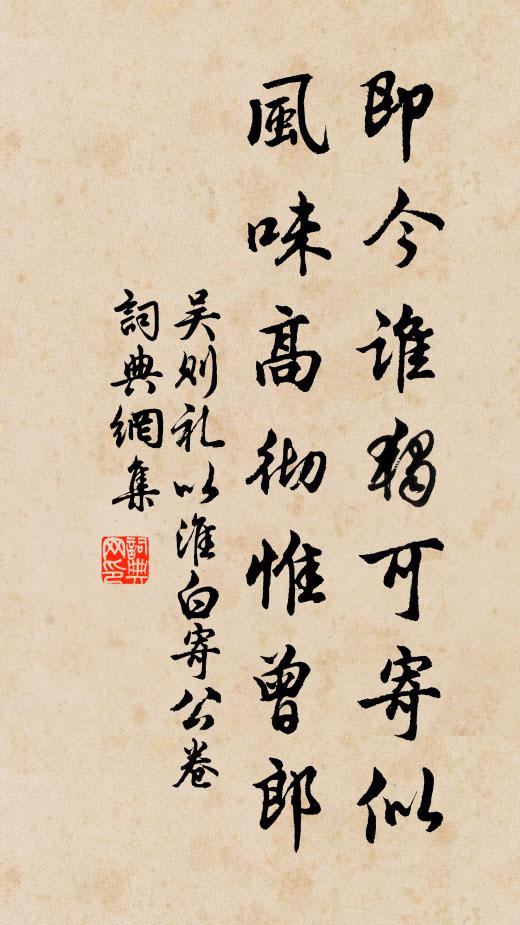 即今誰獨可寄似
風味高彻惟曾郎
吴则礼以淮白寄公卷
詞典網集
詞典網印